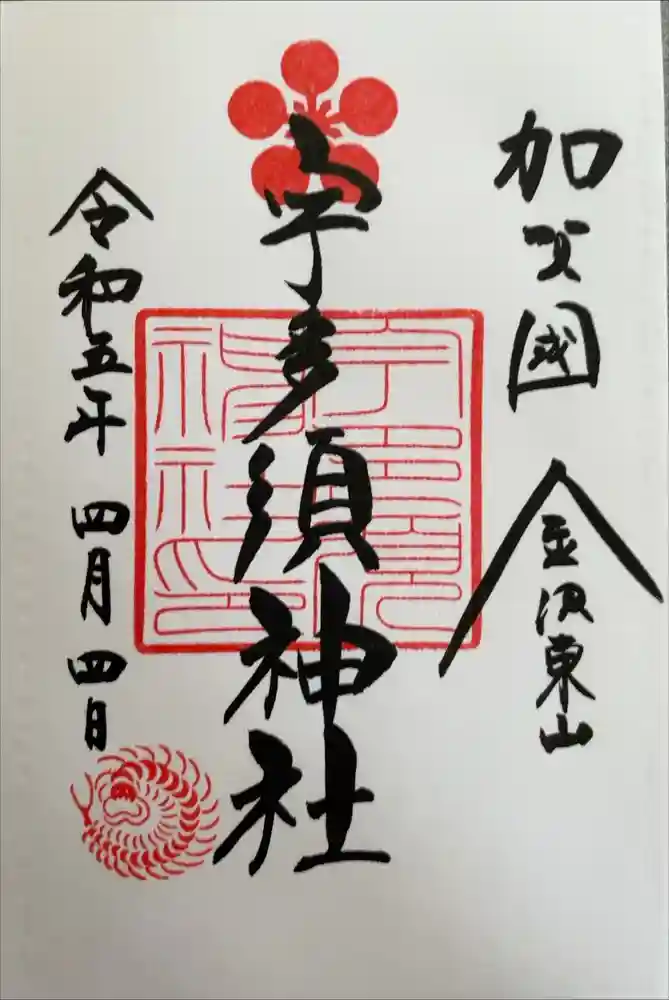 加賀國
金沢東山
宇多須神社
宇多須神社印
令和五年 四月 四日